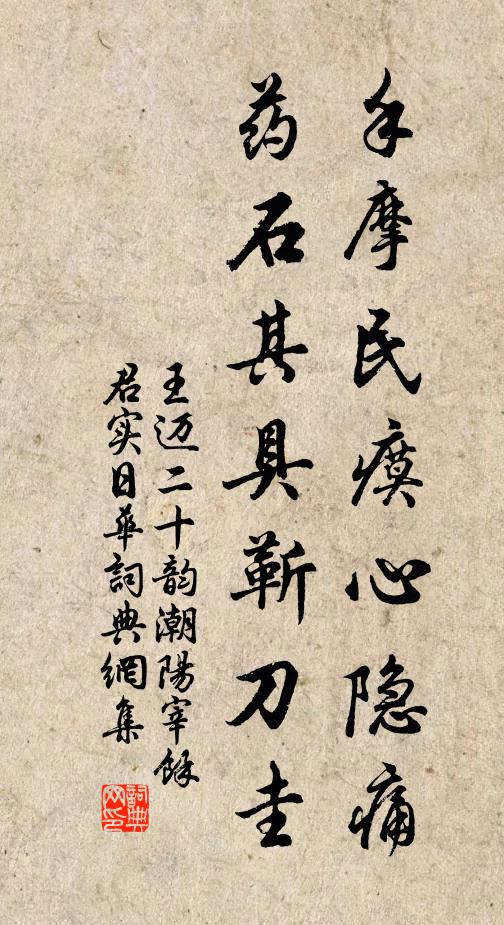 手摩民瘼心隐痛
药石其具靳刀圭
王迈二十韵潮阳宰馀
君实日华詞典網集
詞典網印